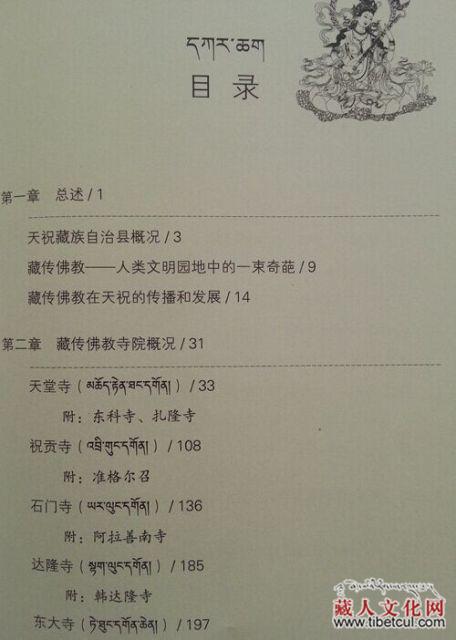 དཀར་ཆག
目 录
第一章 总述 / 1
天祝藏族自治县概况 / 3
藏传佛教——人类文明园地中的一束奇葩 / 9
藏传佛教在天祝的传播和发展 / 14
第二章 藏传佛教寺院概况 / 31
天堂寺（མཆོད་རྟེན་ཐང་དགོན།）/ 33
附：东科寺、扎隆寺
祝贡寺（འབྲི་གུང་དགོན།）/ 108
附：准格尔召
石门寺（ཡར་ལུང་དགོན།）/ 136
附：阿拉善南寺
达隆寺（སྟག་ལུང་དགོན།）/ 185
附：韩达隆寺
东大寺（ཏེ་ཐུང་དགོན་ཆེན།）/ 197
藏人文化网
www.tibetcul.com